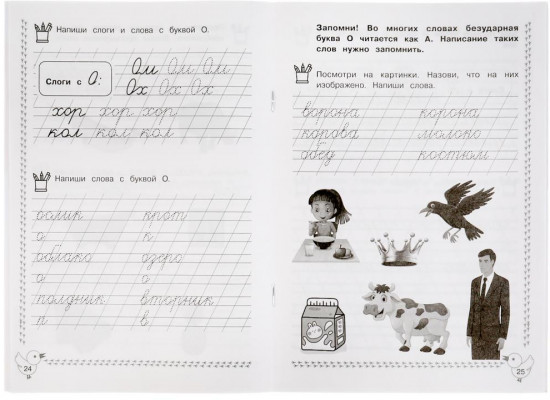 Напиши слоги и слова с буквой О.
Слоги с О:
Ом Ом Ом
Ох Ох Ох
хор хор хор
кол кол кол
Напиши слова с буквой О.
ослик крот
о к
облако озеро
о о
полдник вторник
п в
24
Запомни! Во многих словах безударная
буква О читается как А. Написание таких
слов нужно запомнить.
Посмотри на картинки. Назови, что на них
изображено. Напиши слова.
ворона корона
корова молоко
обед костюм
25